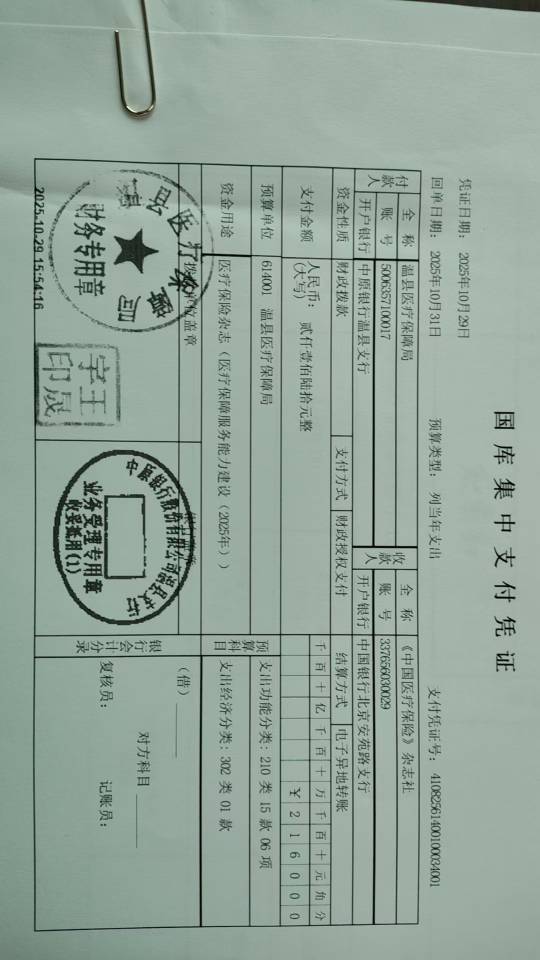 国库集中支付凭证
凭证日期: 2025年10月29日
回单日期: 2025年10月31日 预算类型: 列当年支出 支付凭证号: 41082561400100034001
付款人 全称 温县医疗保障局 收款人 全称 《中国医疗保险》杂志社
账号 5006357100017 账号 337656030029
开户银行 中原银行温县支行 开户银行 中国银行北京安苑路支行
资金性质 财政拨款 支付方式 财政授权支付 结算方式 电子异地转账
支付金额 人民币: (大写) 贰仟壹佰陆拾元整 千百十亿千百十万千百十元角分
¥216000
预算单位 614001 温县医疗保障局 预算科目 支出功能分类: 210 类 15 款 06 项
资金用途 医疗保险杂志(医疗保障服务能力建设(2025年)) 支出经济分类: 302 类 01 款
单位盖章
银行会计分录 (借)
对方科目
复核员: 记账员:
县医疗保
财务专用章
王
印
业务受理专用章
收妥抵用(1)
2025-10-29 15:54:16